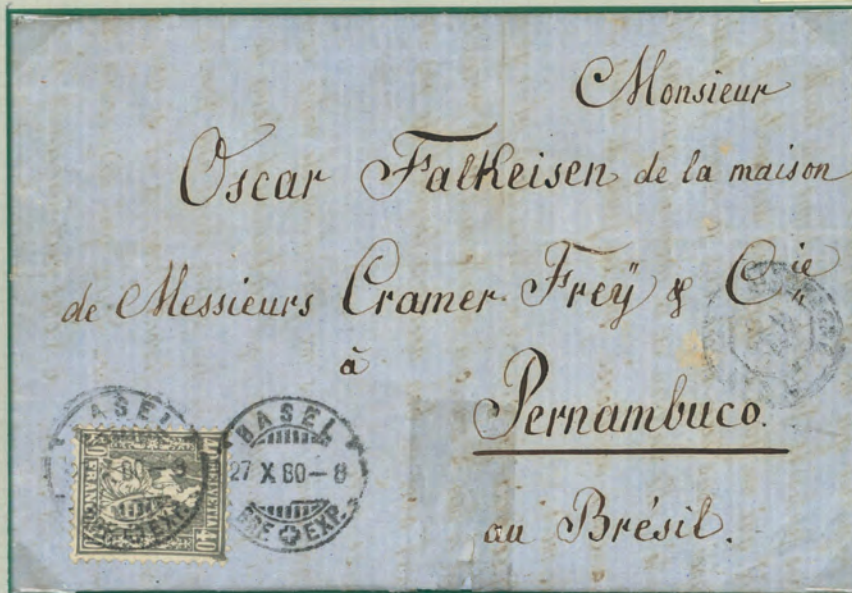 Monsieur
Oscar Falkeisen de la maison
de Messieurs Cramer-Frey̋ & Cie
à
Pernambuco.
au Brésil.
BASEL
27 X 80–8
BRF EXP.
ASEL
80–8
EXP.
40
FRANCO
HELVETIA
40